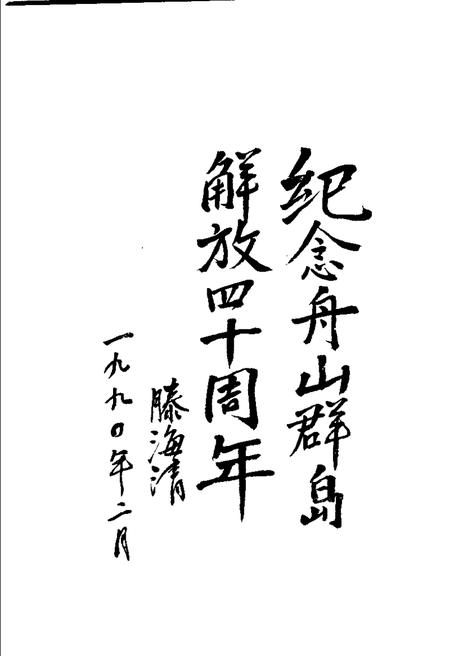 纪念舟山群岛
解放四十周年
滕海清
一九九〇年二月